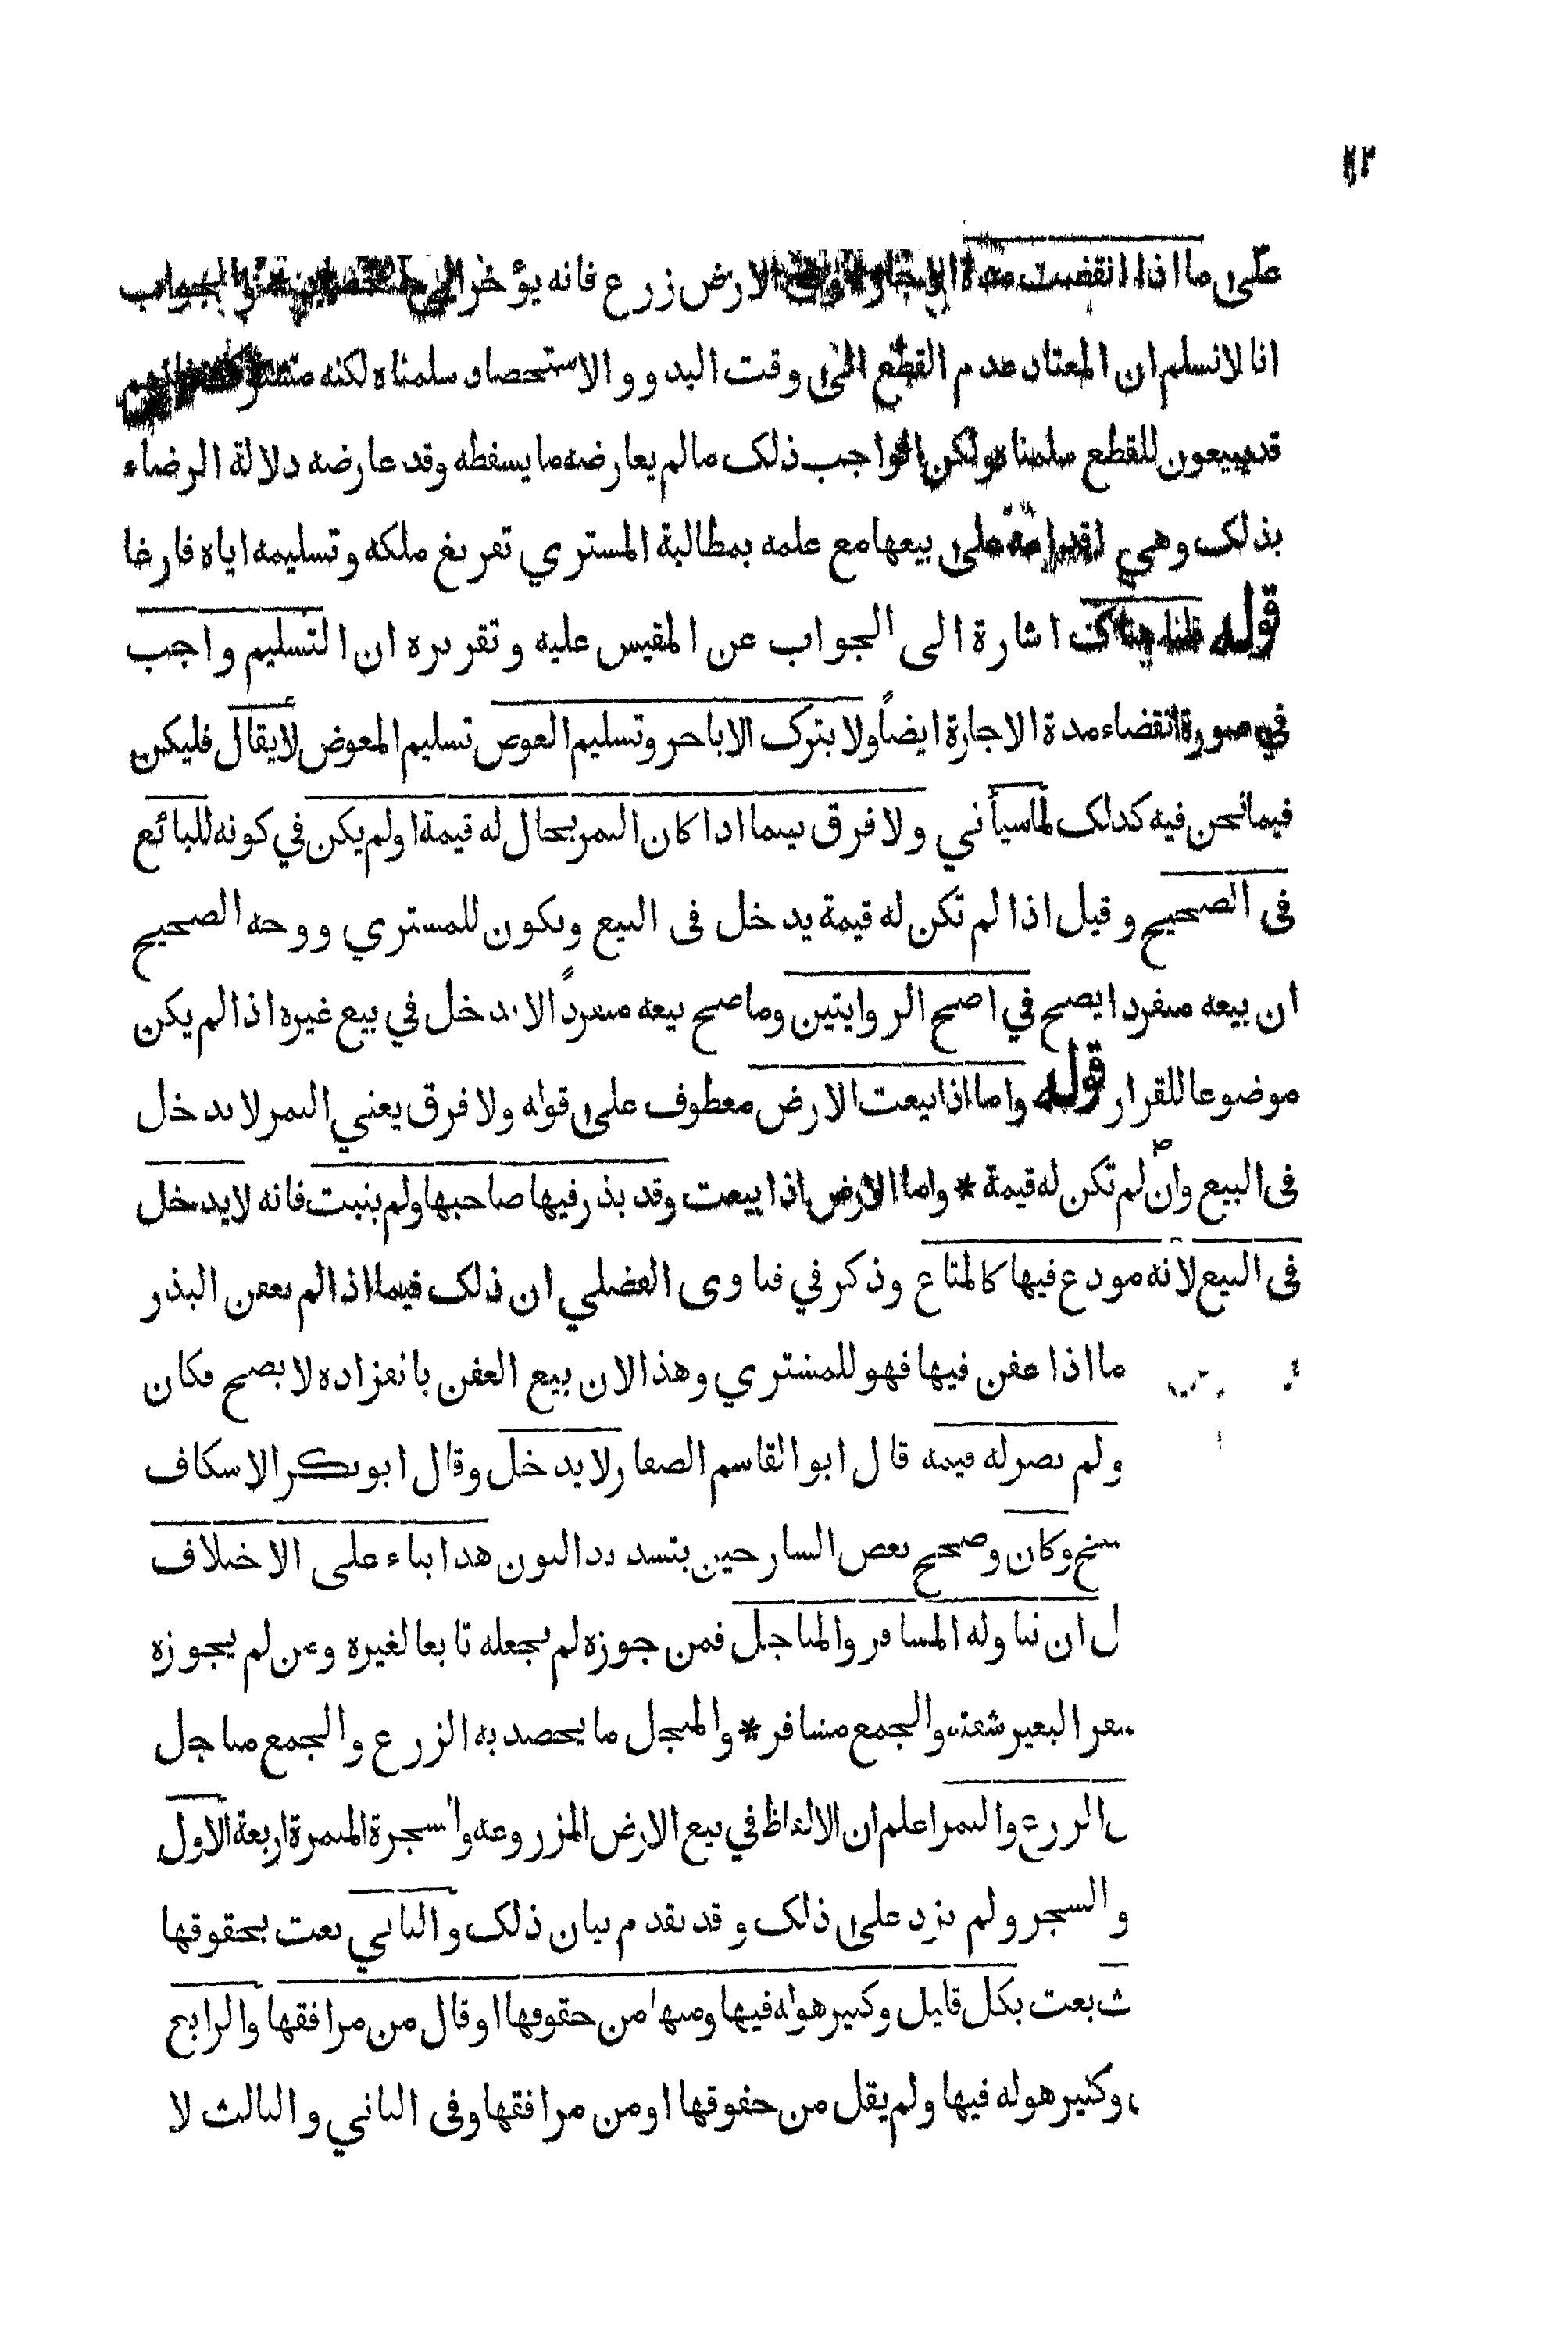 على ما اذا انقضت مدة الاجارة وفي الارض زرع فانه يؤخر الى والجواب
انا لانسلم ان المعتاد عدم القطع الى وقت البدو والاستحصاد سلمناه لكنه
قد يبيعون للقطع سلمناه ولكن الواجب ذلك مالم يعارضه ما يسقطه وقد عارضه دلالة الرضاء
بذلك وهي اقدامه على بيعها مع علمه بمطالبة المشتري تفريغ ملكه وتسليمه اياه فارغا
قوله قلنا هناك اشارة الى الجواب عن المقيس عليه وتقريره ان التسليم واجب
في صورة انقضاء مدة الاجارة ايضاً ولا يترك الا باجر وتسليم العوض تسليم المعوض لا يقال فليكن
فيما نحن فيه كذلك لما سيأتي ولا فرق بينما اذا كان الثمر بحال له قيمة او لم يكن في كونه للبائع
في الصحيح وقيل اذا لم تكن له قيمة يدخل في البيع ويكون للمشتري ووجه الصحيح
ان بيعه منفردا يصح في اصح الروايتين وما صح بيعه منفرداً لا يدخل في بيع غيره اذا لم يكن
موضوعا للقرار قوله واما اذا بيعت الارض معطوف على قوله ولا فرق يعني الثمر لا يدخل
في البيع وان لم تكن له قيمة * واما الارض اذا بيعت وقد بذر فيها صاحبها ولم ينبت فانه لا يدخل
في البيع لانه مودع فيها كالمتاع وذكر في فتاوى الفضلي ان ذلك فيما اذا لم يعفن البذر
ما اذا عفن فيها فهو للمشتري وهذا لان بيع العفن بانفراده لا يصح فكان
ولم يصر له قيمة قال ابو القاسم الصفار لا يدخل وقال ابو بكر الاسكاف
وكان وصحح بعض الشارحين بتشديد النون هذا بناء على الاختلاف
ل ان تناوله المشافر والمناجل فمن جوزه لم يجعله تابعا لغيره ومن لم يجوزه
البعير شفته والجمع مشافر * والمنجل ما يحصد به الزرع والجمع مناجل
الزرع والثمر اعلم ان الالفاظ في بيع الارض المزروعة والشجرة المثمرة اربعة الاول
والشجر ولم يزد على ذلك وقد تقدم بيان ذلك والثاني بعت بحقوقها
ث بعت بكل قليل وكثير هو له فيها ومنها من حقوقها او قال من مرافقها والرابع
وكثير هو له فيها ولم يقل من حقوقها او من مرافقها وفي الثاني والثالث لا